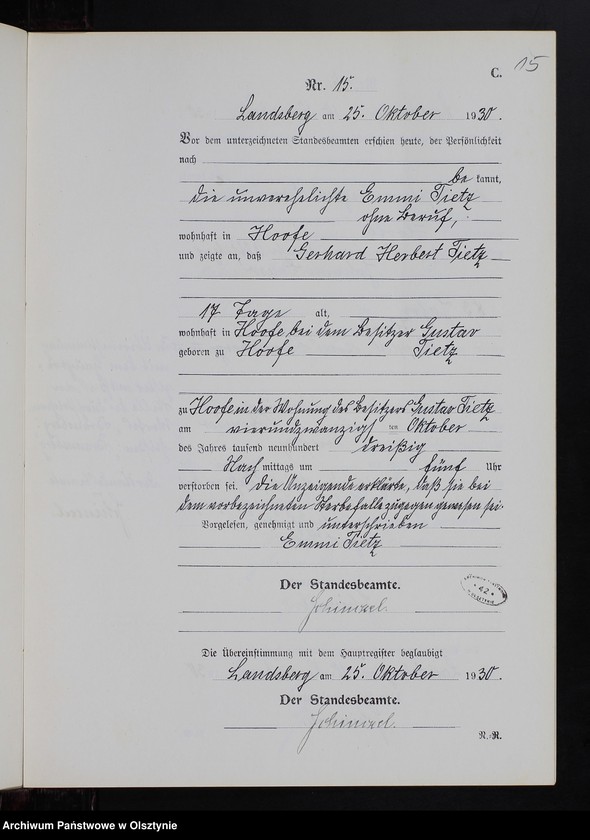 15
C.
Nr. 15.
Landsberg am 25. Oktober 1930.
Vor dem unterzeichneten Standesbeamten erschien heute, der Persönlichkeit
nach
be kannt,
die unverehelichte Emmi Tietz
ohne Beruf,
wohnhaft in Hoofe
und zeigte an, daß Gerhard Herbert Tietz
17 Tage alt,
wohnhaft in Hoofe, bei dem Besitzer Gustav
geboren zu Hoofe Tietz
zu Hoofe in der Wohnung des Besitzers Gustav Tietz
am vierundzwanzigsten Oktober
des Jahres tausend neunhundert dreißig
Nach mittags um fünf Uhr
verstorben sei. Die Anzeigende erklärte, daß sie bei
dem vorbezeichneten Sterbefalle zugegen gewesen sei.
Vorgelesen, genehmigt und unterschrieben
Emmi Tietz
Der Standesbeamte.
42
Die Übereinstimmung mit dem Hauptregister beglaubigt
Landsberg am 25. Oktober 1930.
Der Standesbeamte.
N.-R.
Archiwum Państwowe w Olsztynie